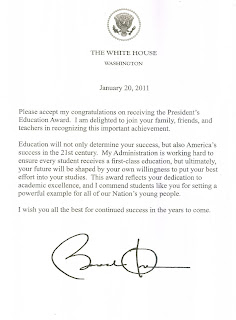 THE WHITE HOUSE
WASHINGTON
January 20, 2011
Please accept my congratulations on receiving the President's
Education Award. I am delighted to join your family, friends, and
teachers in recognizing this important achievement.
Education will not only determine your success, but also America's
success in the 21st century. My Administration is working hard to
ensure every student receives a first-class education, but ultimately,
your future will be shaped by your own willingness to put your best
effort into your studies. This award reflects your dedication to
academic excellence, and I commend students like you for setting a
powerful example for all of our Nation's young people.
I wish you all the best for continued success in the years to come.